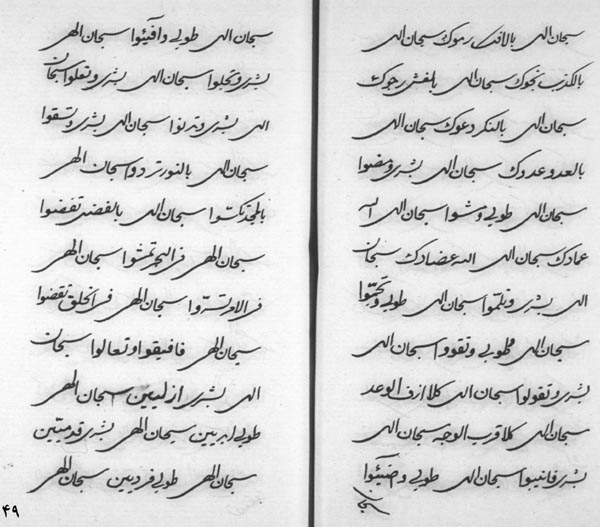 سبحان الهی بالافک رموک سبحان الهی
بالکذب نحوک سبحان الهی بالغش رجوک
سبحان الهی بالنکر دعوک سبحان الهی
بالعد وعدوک سبحان الهی بشری ومضوا
سبحان الهی طوبی ومشوا سبحان الهی الله
عمادک سبحان الهی الله عضادک سبحان
الهی بشری سبحان الهی طوبی
سبحان الهی طوبی وتقووا سبحان الهی
بشری وتقولوا سبحان الهی کلا ازف الوعد
سبحان الهی کلا قرب الوجه سبحان الهی
بشری فانیبوا سبحان الهی طوبی وضیئوا
سبحان
سبحان الهی طوبی وافیئوا سبحان الهی
بشری وتجلوا سبحان الهی بشری وتعلوا سبحان
الهی بشری وتدنوا سبحان الهی بشری وتسقوا
سبحان الهی بالنور تردوا سبحان الهی
سبحان الهی بالفضی تفضوا
سبحان الهی فی البحر تمشوا سبحان الهی
فی الامر تسروا سبحان الهی فی الخلق تقضوا
سبحان الهی فافیقوا وتعالوا سبحان
الهی بشری ازلیین سبحان الهی
طوبی ابدیین سبحان الهی بشری قدمیین
سبحان الهی طوبی فردیین سبحان الهی
۴۹